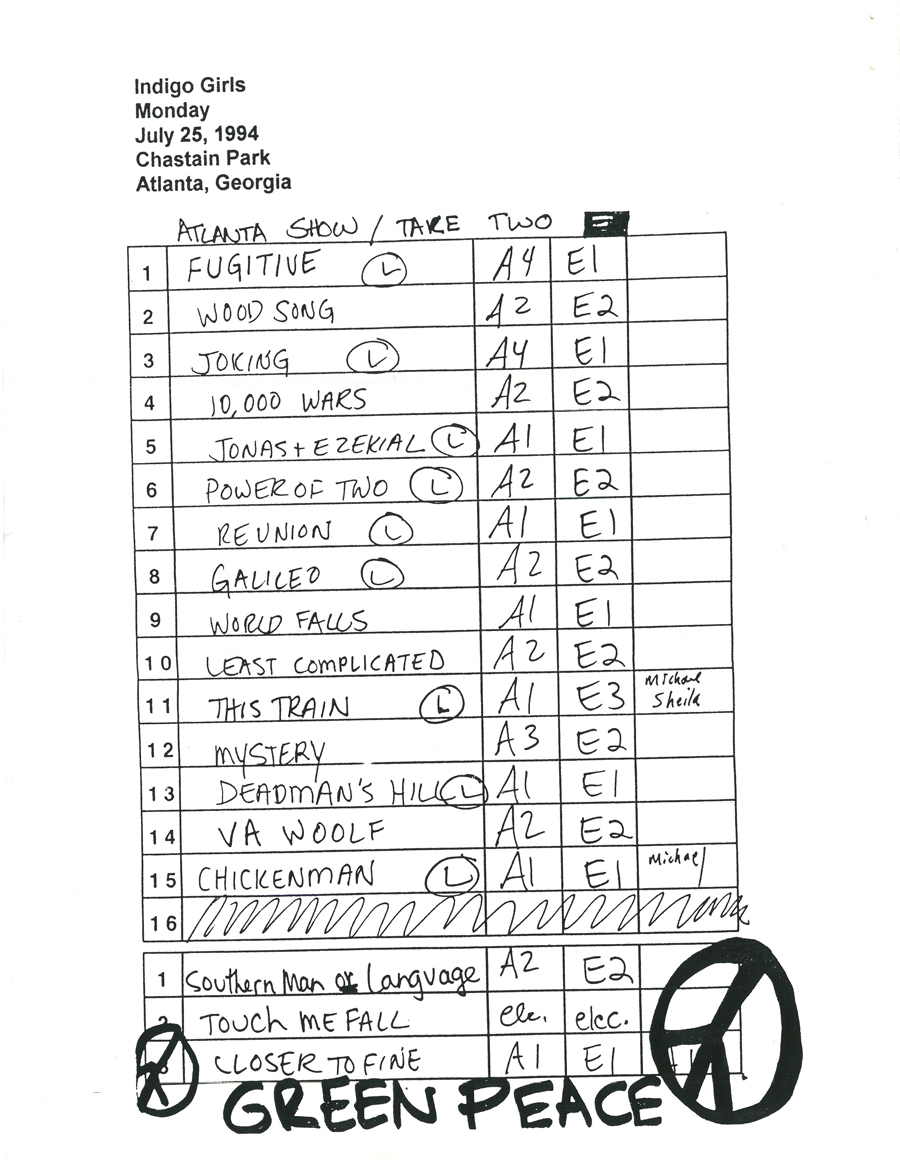 Indigo Girls
Monday
July 25, 1994
Chastain Park
Atlanta, Georgia
ATLANTA SHOW / TAKE TWO
1 FUGITIVE L A4 E1
2 WOOD SONG A2 E2
3 JOKING L A4 E1
4 10,000 WARS A2 E2
5 JONAS + EZEKIAL L A1 E1
6 POWER OF TWO L A2 E2
7 REUNION L A1 E1
8 GALILEO L A2 E2
9 WORLD FALLS A1 E1
10 LEAST COMPLICATED A2 E2
11 THIS TRAIN L A1 E3 Michael Sheila
12 MYSTERY A3 E2
13 DEADMAN'S HILL L A1 E1
14 VA WOOLF A2 E2
15 CHICKENMAN L A1 E1 Michael
16
1 Southern Man or Language A2 E2
2 TOUCH ME FALL ele. elec.
3 CLOSER TO FINE A1 E1
GREEN PEACE